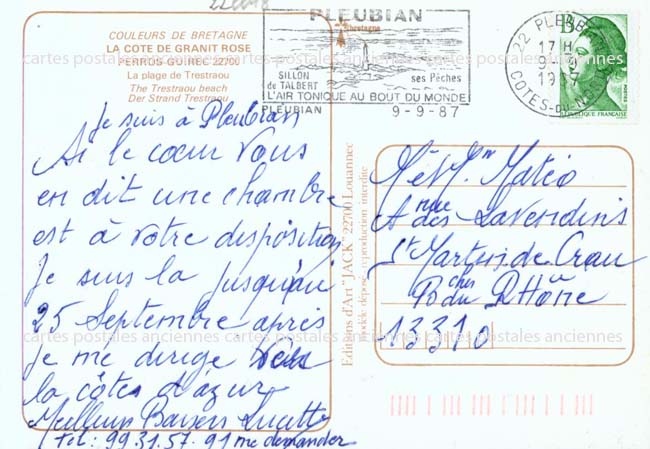 COULEURS DE BRETAGNE
LA COTE DE GRANIT ROSE
PERROS-GUIREC 22700
La plage de Trestraou
The Trestraou beach
Der Strand Trestraou
PLEUBIAN
Bretagne
SILLON
de TALBERT
ses Pêches
L'AIR TONIQUE AU BOUT DU MONDE
PLEUBIAN 9-9-87
22 PLEUBIAN
17 H
COTES-DU-NORD
B
POSTES
REPUBLIQUE FRANÇAISE
Je suis à Pleubian
Si le cœur vous
en dit une chambre
est à votre disposition
Je suis la jusqu'au
25 Septembre après
je me dirige vers
la côtes d'azur
Meilleurs Baisers Lucette
Tel: 99.31.57.91 me demander
Editions d'Art "JACK" 22700 Louannec
modèle déposé - reproduction interdite
Me M. Matéo
rue
des Lavendins
St Martin de Crau
Bches du Rhône
13310
cartes postales anciennes